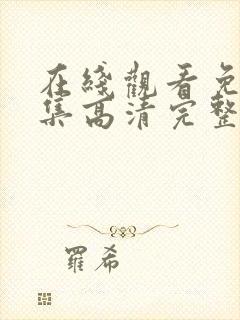 在綫觀看免
集高清完整
羅希